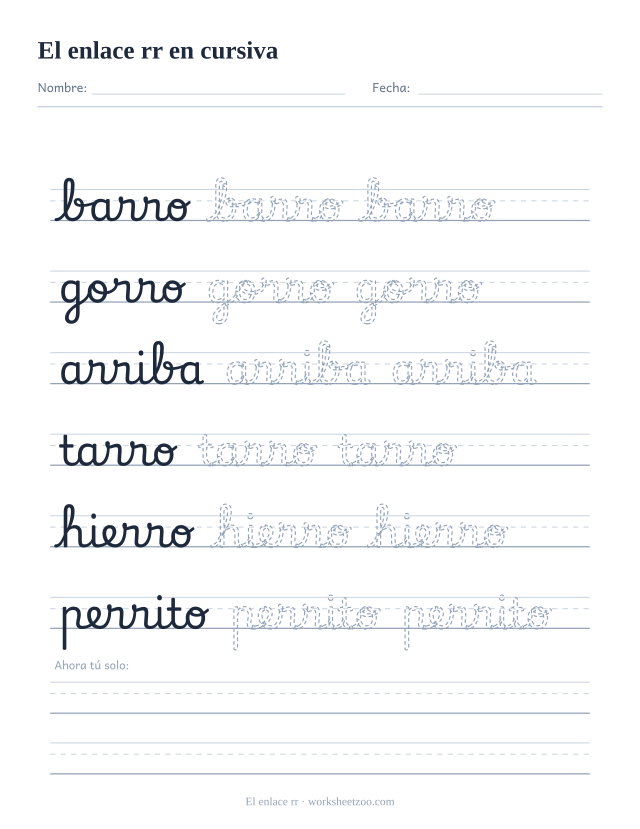 El enlace rr en cursiva
Nombre: Fecha:
barro barro barro
gorro gorro gorro
arriba arriba arriba
tarro tarro tarro
hierro hierro hierro
perrito perrito perrito
Ahora tú solo:
El enlace rr · worksheetzoo.com